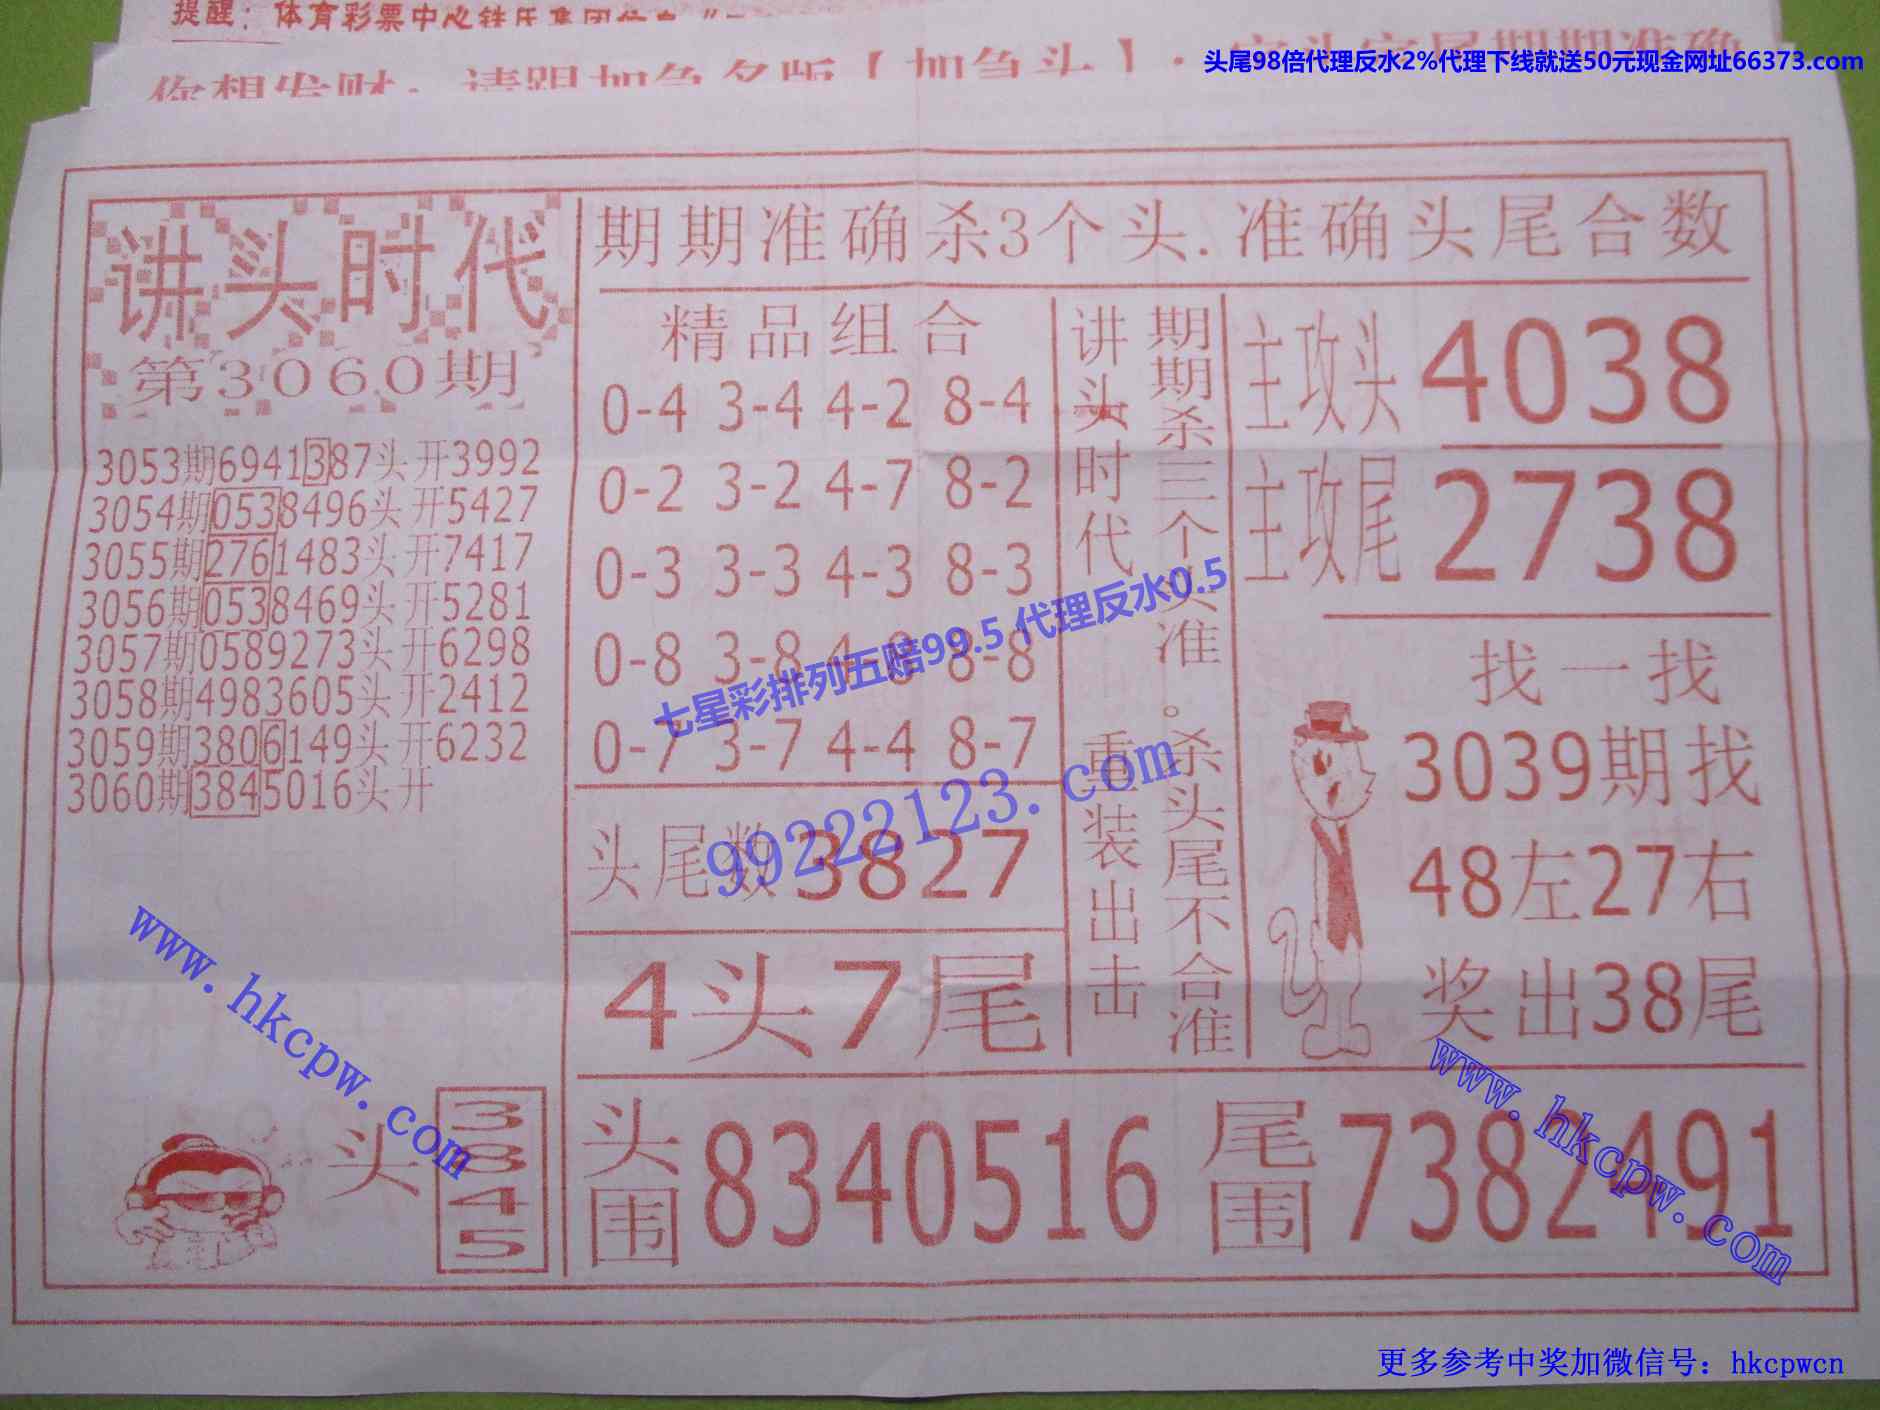 提醒：体育彩票中心
你想发财，请跟加急名版【加急头】
头尾98倍代理反水2%代理下线就送50元现金网址66373.com
讲头时代
第3060期
3053期6941387头开3992
3054期0538496头开5427
3055期2761483头开7417
3056期0538469头开5281
3057期0589273头开6298
3058期4983605头开2412
3059期3806149头开6232
3060期3845016头开
头
3845
期期准确杀3个头.准确头尾合数
精品组合
0-4 3-4 4-2 8-4
0-2 3-2 4-7 8-2
0-3 3-3 4-3 8-3
0-8 3-8 4-8 8-8
0-7 3-7 4-4 8-7
头尾数3827
4头7尾
讲头时代 重装出击
期期杀三个头准。杀头尾不合准
主攻头4038
主攻尾2738
找一找
3039期找
48左27右
奖出38尾
头围8340516 尾围7382491
七星彩排列五赔99.5 代理反水0.5
99222123.com
www.hkcpw.com
www.hkcpw.com
更多参考中奖加微信号：hkcpwcn